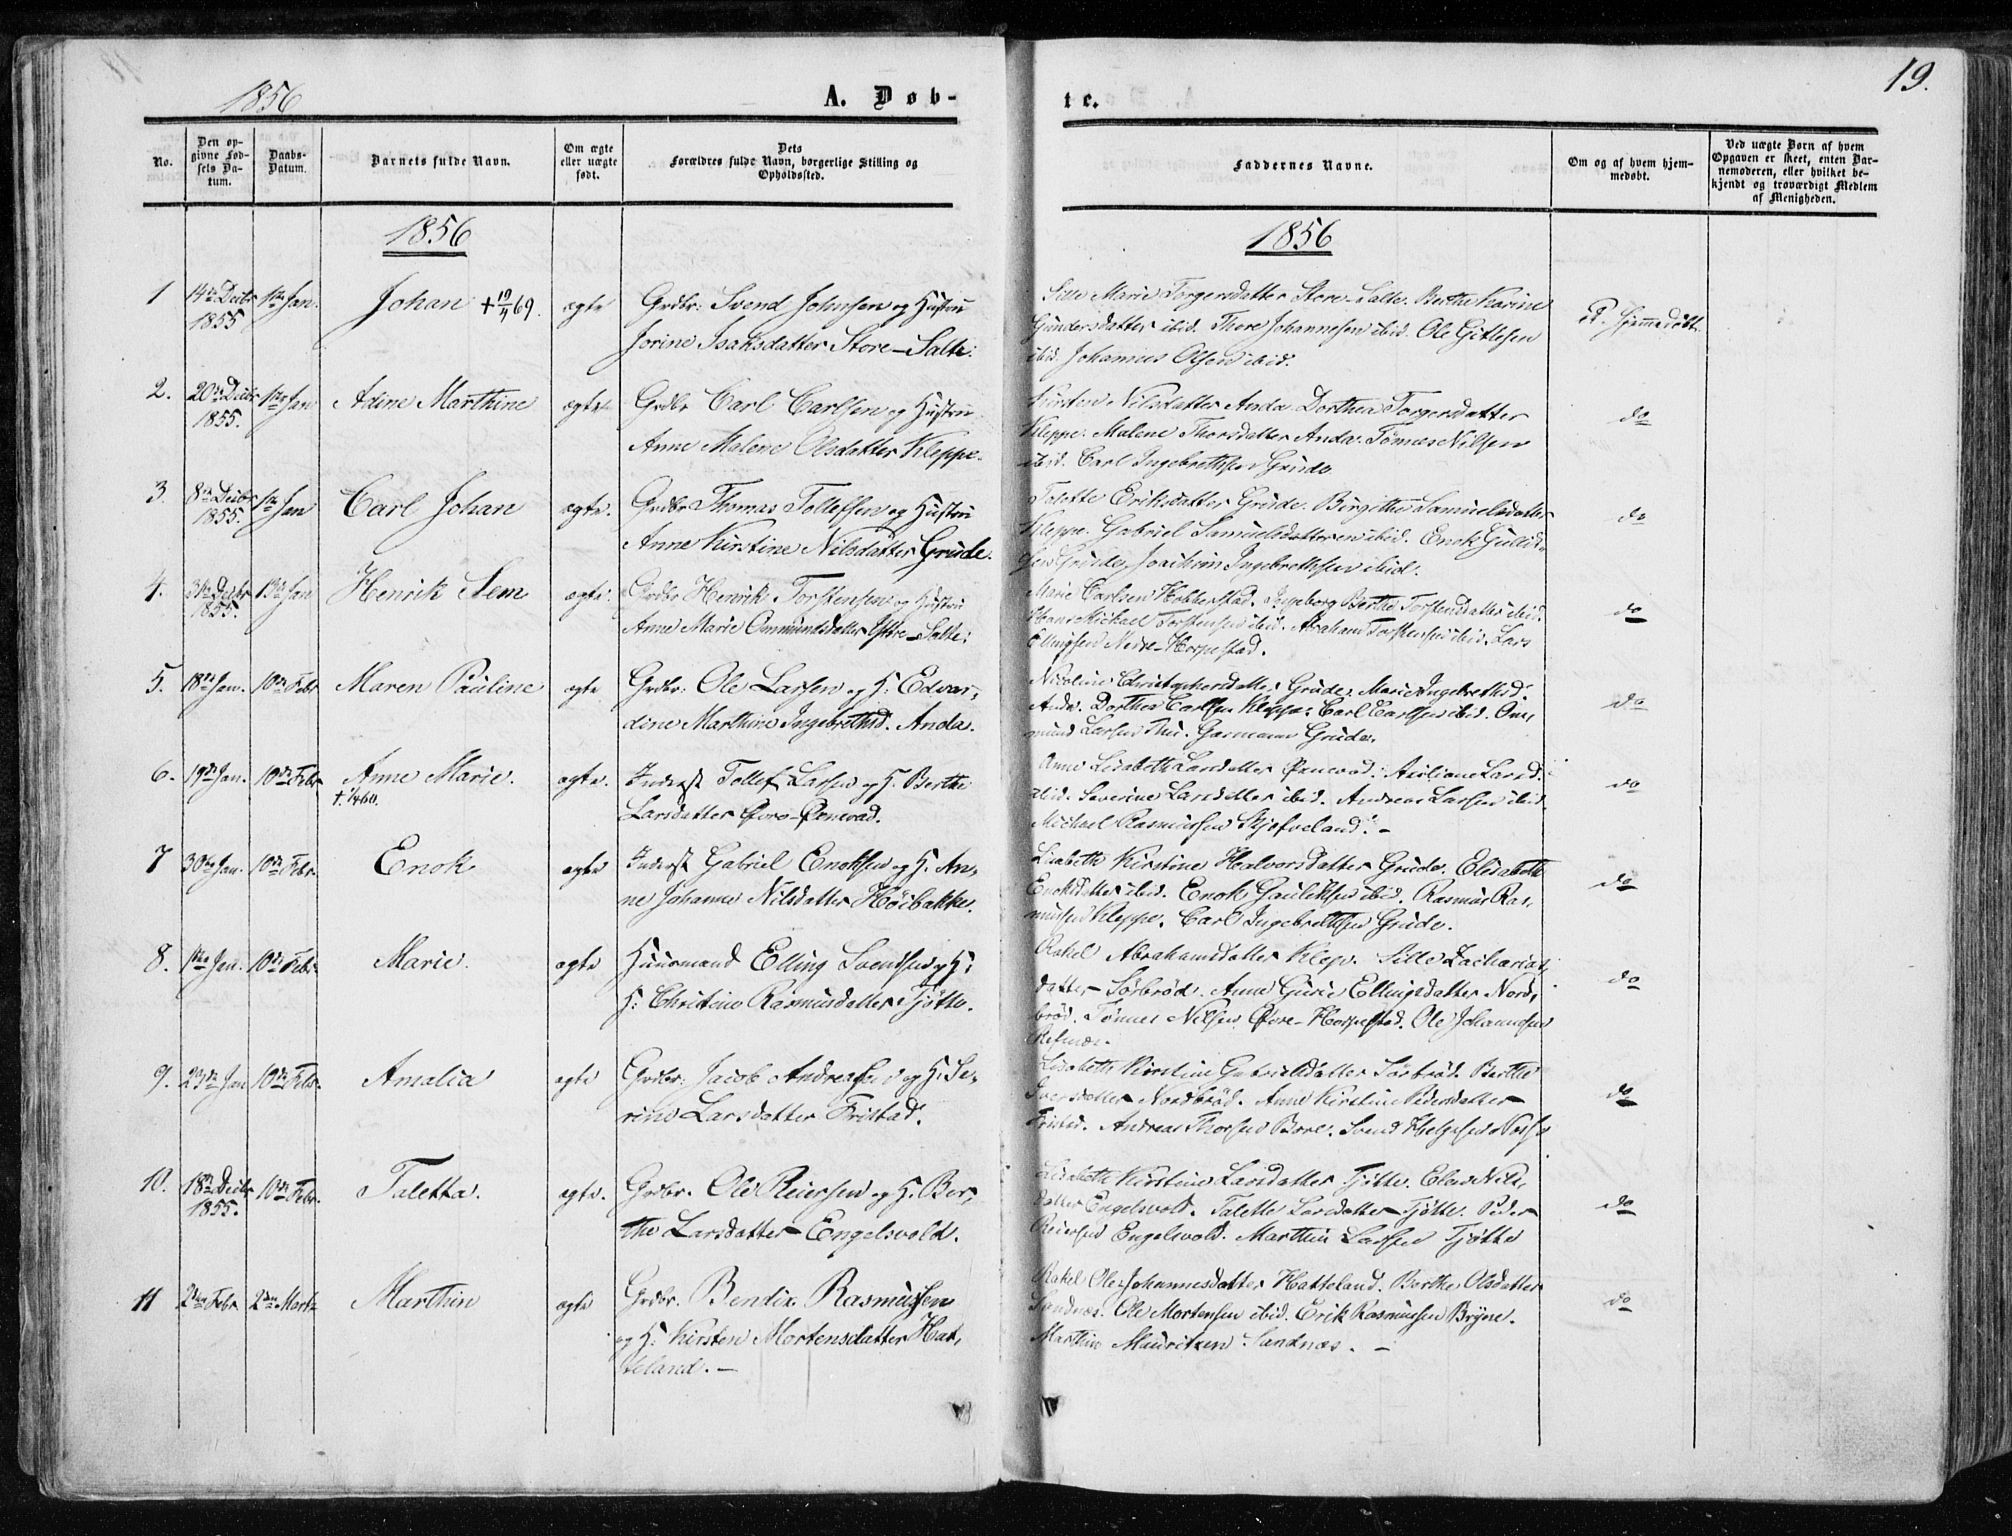 1856
A. Døb-
te.
19.
No.
Den op-
givne Fød-
sels Da-
tum.
Daabs-
Datum.
Barnets fulde Navn.
Om ægte
eller uægte
født.
Dets
Forældres fulde Navn, borgerlige Stilling og
Opholdssted.
Faddernes Navne.
Om og af hvem hjem-
medøbt.
Ved uægte Børn af hvem
Opgaven er skeet, enten Bar-
nemoderen, eller hvilket be-
kjendt og troværdigt Medlem
af Menigheden.
1856
1856
1 14de Decbr 1ste Jan. Johan ægte Grdbr: Svend Johnsen og Hustru
1855
Jorine Isaksdatter Store-Salte.
Sille Marie Torgersdatter Store-Salte. Berthe Karine
Gundersdatter ibid. Thore Johannesen ibid. Ole Gitlesen
ibid. Johannes Olsen ibid.
Hjemmedøbt
2. 20de Decbr 1ste Jan Adine Marthine ægte Grdbr Carl Carlsen og Hustru
1855.
Anne Malene Olsdatter Kleppe.
Kirsten Nilsdatter Anda. Dorthea Torgersdatter
Kleppe. Malene Thorsdatter Anda. Tønnes Nilsen
ibid. Carl Ingebrethsen Grude
do
3. 8de Decbr 1ste Jan Carl Johan ægte. Grdbr Thomas Tollefsen og Hustru
1855.
Anne Kirstine Nilsdatter Grude.
Talette Eriksdatter Grude. Birgithe Samuelsdatter
Kleppe. Gabriel ibid. Enok
Grude, Joachim Ingebrethsen ibid.
do
4. 31te Decbr 13de Jan Henrik Sem ægte. Grdbr Henrik Torstensen og Hustru
1855.
Anne Marie Ommundsdatter Salte.
Marie Carlsen Ingeborg Berthe Torstensdatter ibid.
Michael Torstensen ibid. Abraham Torstensen ibid. Lars
Ellingsen Nedre-Horpestad.
do
5. 18de Jan. 10de Febr Maren Pauline ægte Grdbr: Ole Larsen og H: Edvar,
dine Marthine Ingebrethsd. Anda.
Nicoline Christophersdatter Grude. Marie Ingebrethsd.
Anda. Dorthea Carlsen Kleppe. Carl Carlsen ibid. Om,
mund Larsen Thu. Garmann Grude.
do
6. 19de Jan. 10de Febr. Anne Marie. ægte. Inderst Tollef Larsen og H. Berthe
Larsdatter Øvre-Øxnevad.
Anne Lisabeth Larsdatter Øxnevad. Larsd.
ibid. Severine Larsdatter ibid. Andreas Larsen ibid
Michael Rasmussen Skjefveland. –
do
7 30te Jan. 10de Febr. Enok ægte Inderst Gabriel Enoksen og H. An,
ne Johanne Nilsdatter Høibakke.
Lisabeth Kirstine Halvorsdatter Grude. Elisabeth
Enoksdatter ibid. Enok ibid. Rasmus Ras,
mussen Kleppe. Carl Ingebrethsen Grude.
do
8. 1ste Jan. 10de Febr. Marie. ægte Huusmand Elling Svendsen og H:
H: Christine Rasmusdatter Tjøtte.
Rakel Abrahamsdatter Klep. Sille Zacharias,
datter Sørbrød. Anne Gurie Ellingsdatter Nord,
brød. Tønnes Nilsen Øvre-Horpestad. Ole Johannesen
Refsnæs.
do
9. 23de Jan 10de Febr. Amalia ægte Grdbr: Jacob Andreasen og H: Se,
rine Larsdatter Fristad.
Lisabeth Kirstine Gabrielsdatter Sørbrød. Berthe
Iversdatter Nordbrød. Anne Kirstine Pedersdatter
Fristad. Andreas Thorsen Bore. Svend Helgesen
do
10. 18de Decbr 10de Febr. Taletta. ægte. Grdbr. Ole Reiersen og H. Ber,
1855.
the Larsdatter Engelsvold.
Lisabeth Kirstine Larsdatter Tjøtte. Elen Nils,
datter Engelsvold. Talette Larsdatter Tjøtte. Peder
Reiersen Engelsvold. Marthin Larsen Tjøtte
do
11 2den Febr 2den Marts Marthin ægte Grdbr. Bendix Rasmussen
og H: Kirsten Mortensdatter Hat,
teland. –
Rakel Ole Johannesdatter Hatteland. Berthe Olsdatter
Sandnæs. Ole Mortensen ibid. Erik Rasmussen Bryne.
Marthin Mauritzen Sandnæs. –
do